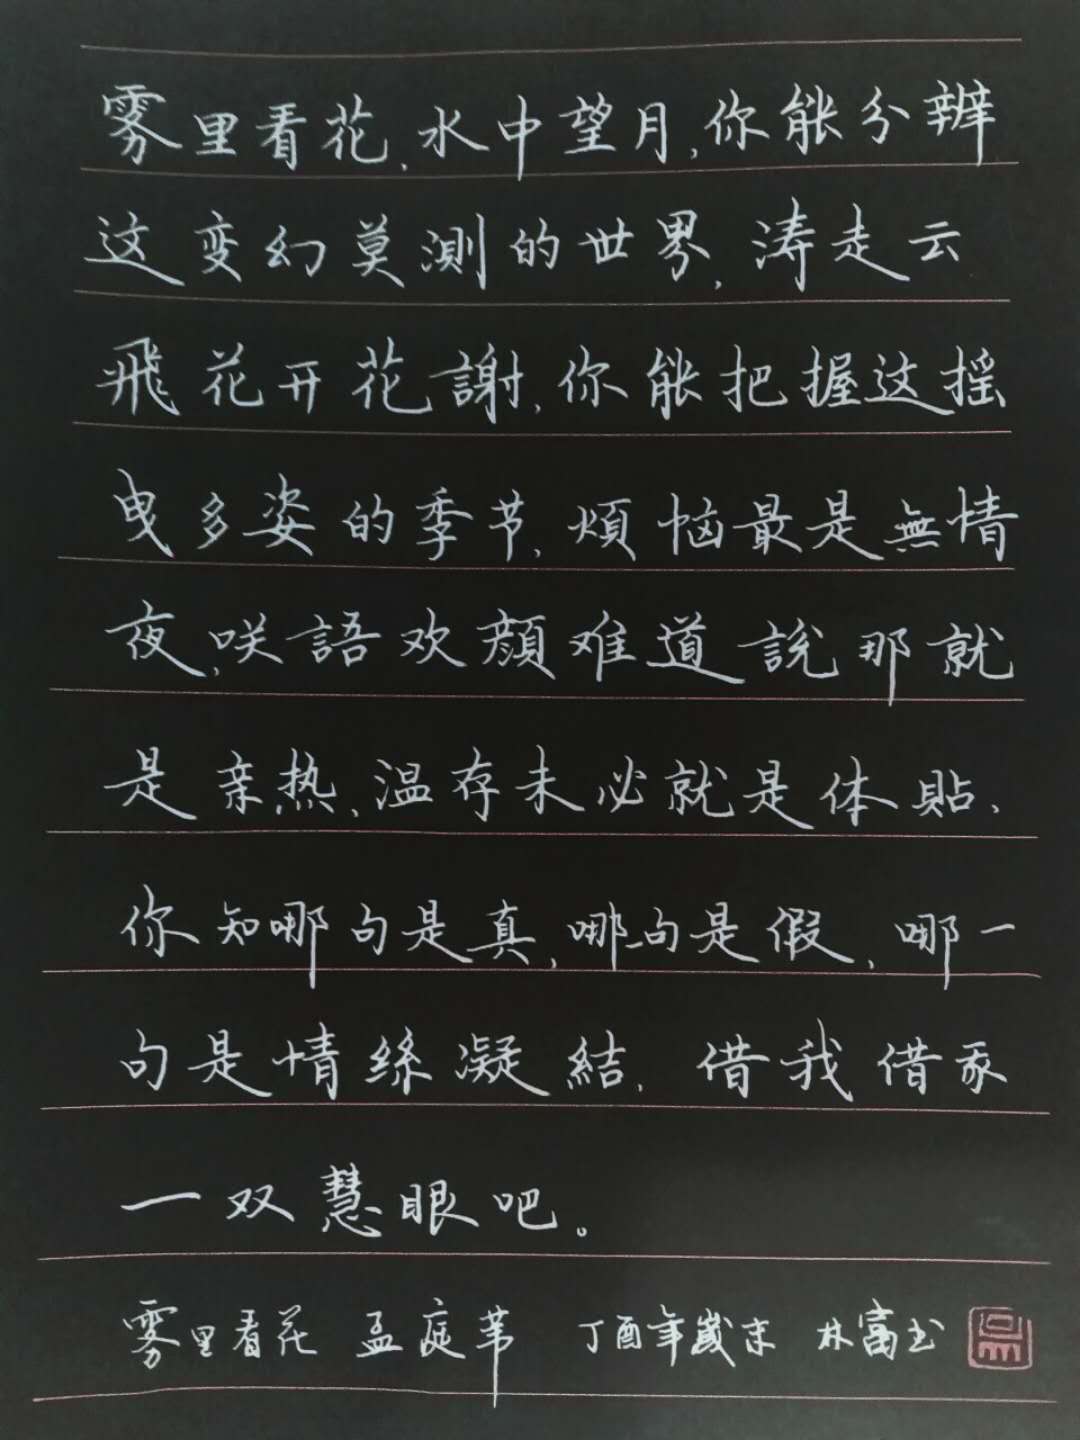 雾里看花,水中望月,你能分辨
这变幻莫测的世界,涛走云
飛花开花謝,你能把握这摇
曳多姿的季节,煩恼最是無情
夜,咲語欢顔难道説那就
是亲热,温存未必就是体貼,
你知哪句是真,哪句是假,哪一
句是情絲凝結,借我借我
一双慧眼吧。
雾里看花 孟庭苇 丁酉年歲末 林富书